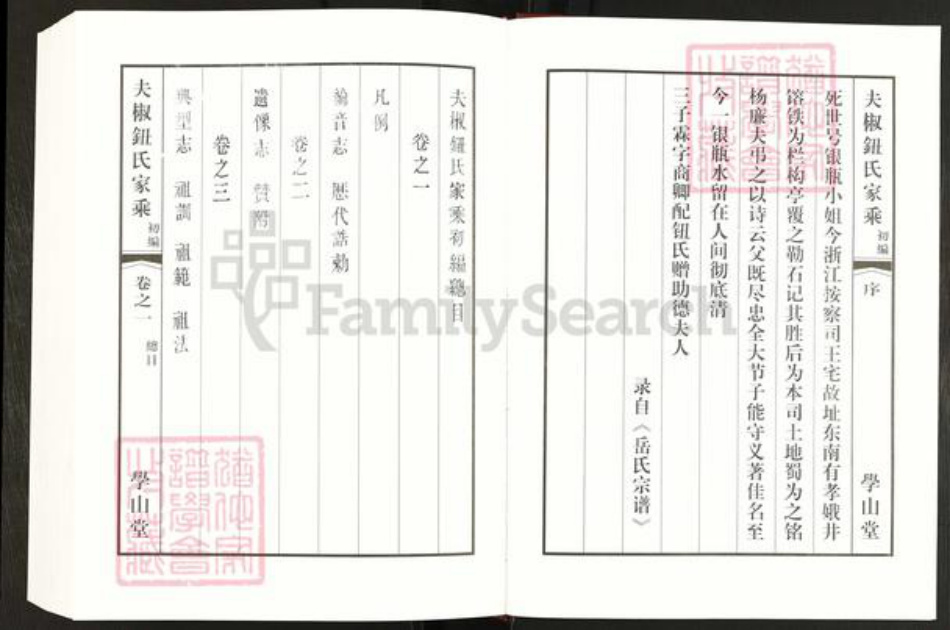 夫椒鈕氏家乘 初编 序 學山堂
死世号银瓶小姐今浙江按察司王宅故址东南有孝娥井
镕铁为栏构亭覆之勒石记其胜后为本司土地蜀为之铭
杨廉夫弔之以诗云父既尽忠全大节子能守义著佳名至
今一银瓶水留在人间彻底清
三子霖字商卿配钮氏赠助德夫人
录自《岳氏宗谱》
夫椒鈕氏家乘初編總目
卷之一
凡例
綸音志 歷代誥勅
卷之二
遺像志 贊附
卷之三
典型志 祖訓 祖範 祖法
夫椒鈕氏家乘 初编 卷之一 總目 學山堂
FamilySearch